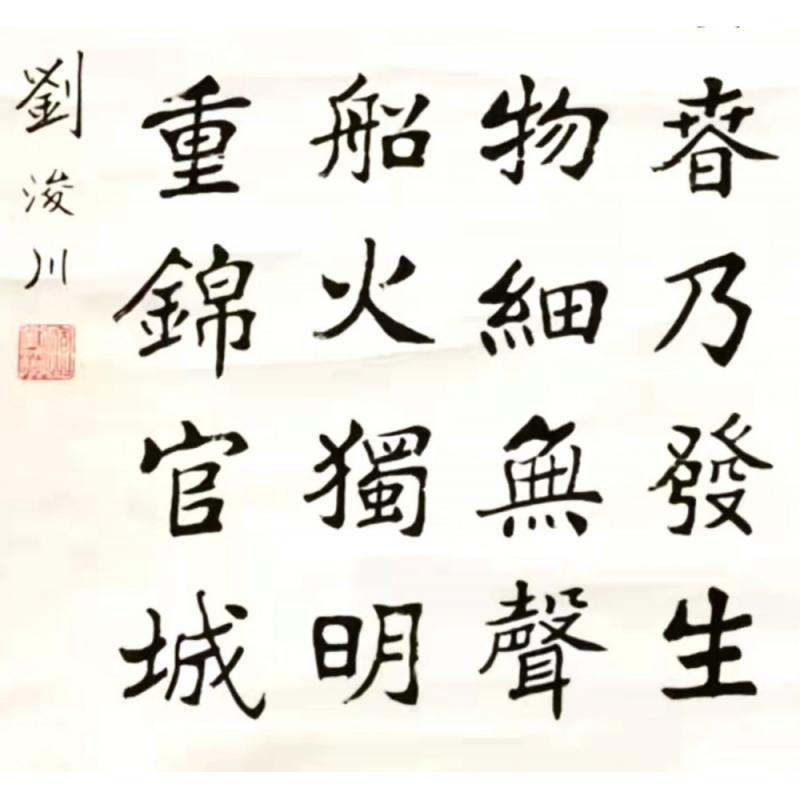 春乃發生
物細無聲
船火獨明
重錦官城
劉浚川